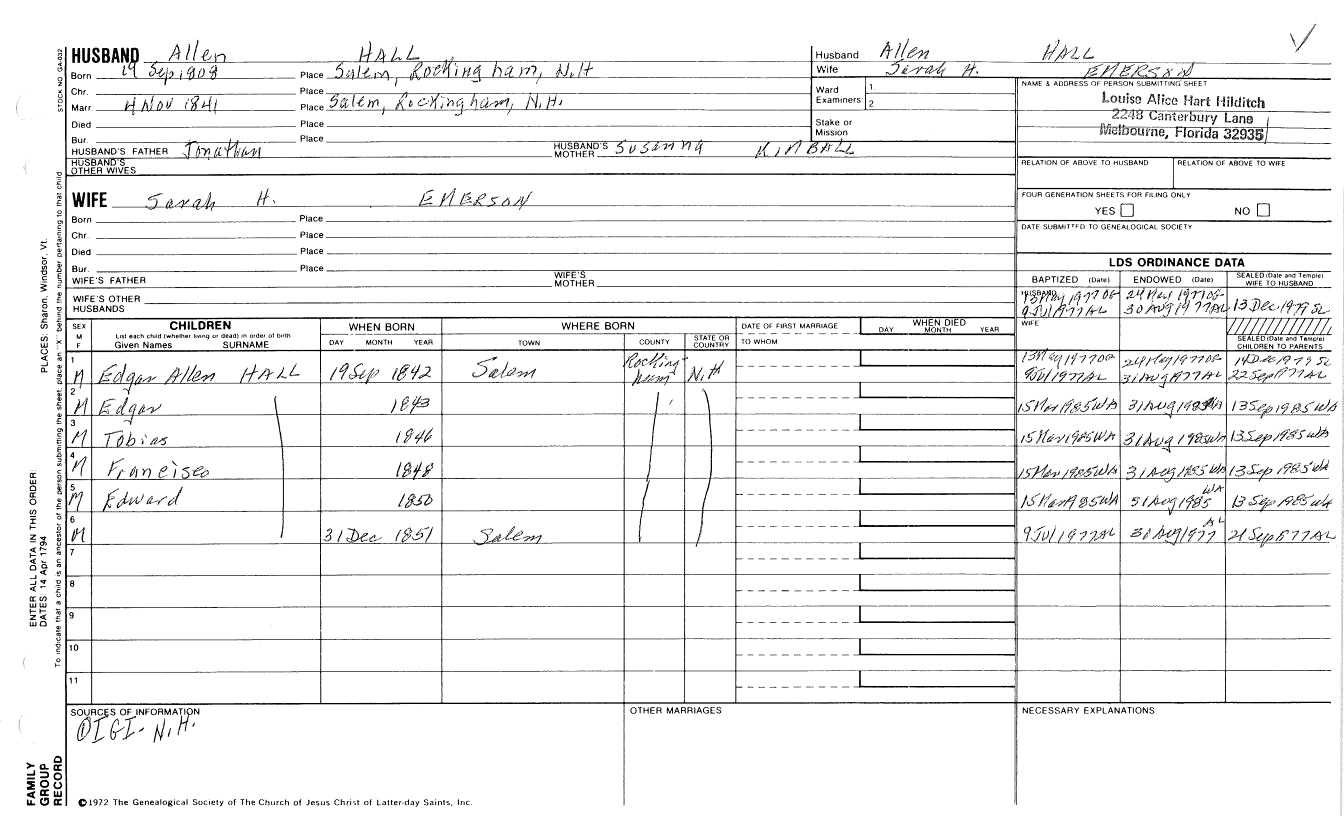 HUSBAND Allen HALL
Born 19 Sep 1808 Place Salem, Rockingham, N.H
Chr. Place
Marr. 4 Nov 1841 Place Salem, Rockingham, N.H.
Died Place
Bur. Place
HUSBAND'S FATHER Jonathan HUSBAND'S MOTHER Susanna KIMBALL
HUSBAND'S OTHER WIVES
Husband Allen HALL
Wife Sarah H. EMERSON
Ward Examiners 1 2
Stake or Mission
NAME & ADDRESS OF PERSON SUBMITTING SHEET
Louise Alice Hart Hilditch
2248 Canterbury Lane
Melbourne, Florida 32935
RELATION OF ABOVE TO HUSBAND RELATION OF ABOVE TO WIFE
FOUR GENERATION SHEETS FOR FILING ONLY
YES NO
DATE SUBMITTED TO GENEALOGICAL SOCIETY
WIFE Sarah H. EMERSON
Born Place
Chr. Place
Died Place
Bur. Place
WIFE'S FATHER WIFE'S MOTHER
WIFE'S OTHER HUSBANDS
LDS ORDINANCE DATA
BAPTIZED (Date) ENDOWED (Date) SEALED (Date and Temple) WIFE TO HUSBAND
HUSBAND 13 May 1977 OG 24 May 1977 OG
9 Jul 1977 AL 30 Aug 1977 AL 13 Dec 1979 SL
WIFE
SEALED (Date and Temple) CHILDREN TO PARENTS
SEX M F CHILDREN List each child (whether living or dead) in order of birth Given Names SURNAME WHEN BORN DAY MONTH YEAR WHERE BORN TOWN COUNTY STATE OR COUNTRY DATE OF FIRST MARRIAGE TO WHOM WHEN DIED DAY MONTH YEAR
1 M Edgar Allen HALL 19 Sep 1842 Salem Rockingham N.H 13 May 1977 OG 24 May 1977 OG 14 Dec 1979 SL
9 Jul 1977 AL 31 Aug 1977 AL 22 Sep 1977 AL
2 M Edgar 1843 15 Mar 1985 WA 31 Aug 1985 WA 13 Sep 1985 WA
3 M Tobias 1846 15 Mar 1985 WA 31 Aug 1985 WA 13 Sep 1985 WA
4 M Francisco 1848 15 Mar 1985 WA 31 Aug 1985 WA 13 Sep 1985 WA
5 M Edward 1850 15 Mar 1985 WA 31 Aug 1985 WA 13 Sep 1985 WA
6 M 31 Dec 1851 Salem 9 Jul 1977 AL 30 Aug 1977 AL 21 Sep 1977 AL
7
8
9
10
11
SOURCES OF INFORMATION
① IGI - N.H.
OTHER MARRIAGES
NECESSARY EXPLANATIONS:
©1972 The Genealogical Society of The Church of Jesus Christ of Latter-day Saints, Inc.
FAMILY GROUP RECORD
ENTER ALL DATA IN THIS ORDER:
DATES: 14 Apr 1794 PLACES: Sharon, Windsor, Vt.
To indicate that a child is an ancestor of the person submitting the sheet, place an "X" behind the number pertaining to that child.
STOCK NO. GA-032